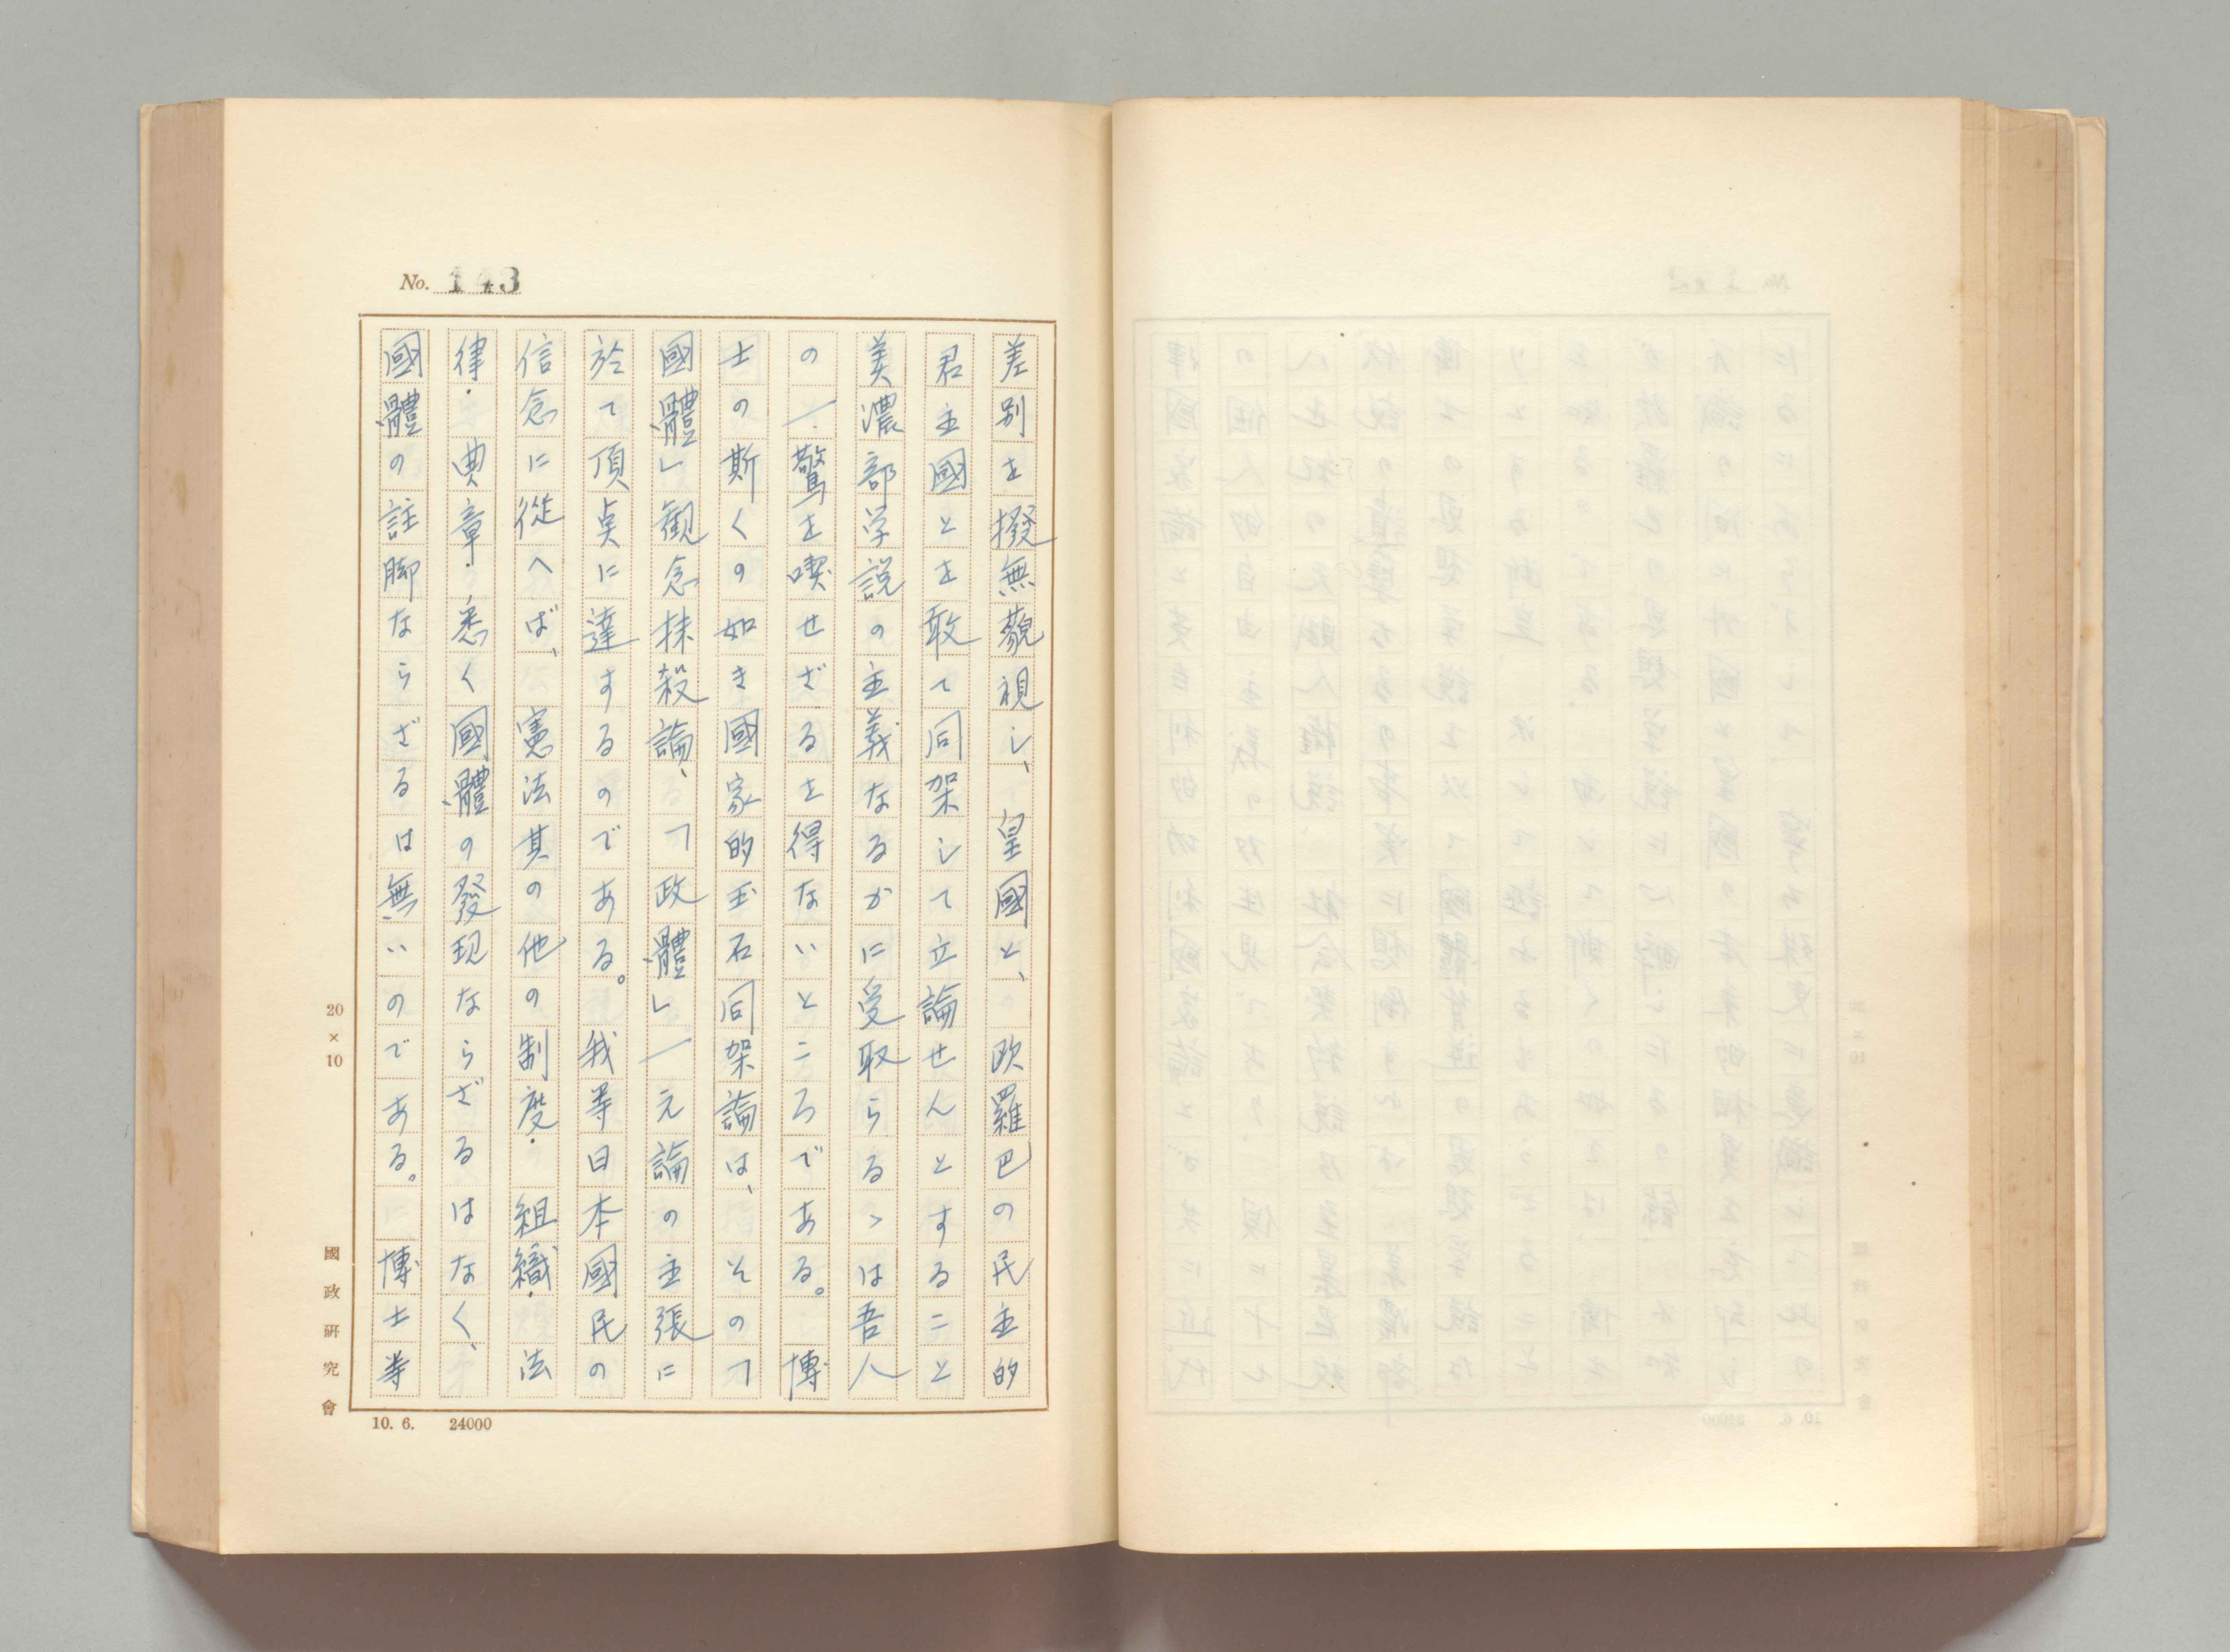 No. 143
差別を撥無藐視し、皇國と、欧羅巴の民主的
君主國とを敢て同架して立論せんとすること
美濃部学説の主義なるかに受取らるゝは吾人
の一驚を喫せざるを得ないところである。博
士の斯くの如き國家的玉石同架論は、その「
國體」観念抹殺論、「政體」一元論の主張に
於て頂点に達するのである。我等日本國民の
信念に從へば、憲法其の他の制度・組織・法
律・典章・悉く國體の發現ならざるはなく、
國體の註脚ならざるは無いのである。博士等
20×10
國政研究會
10. 6. 24000